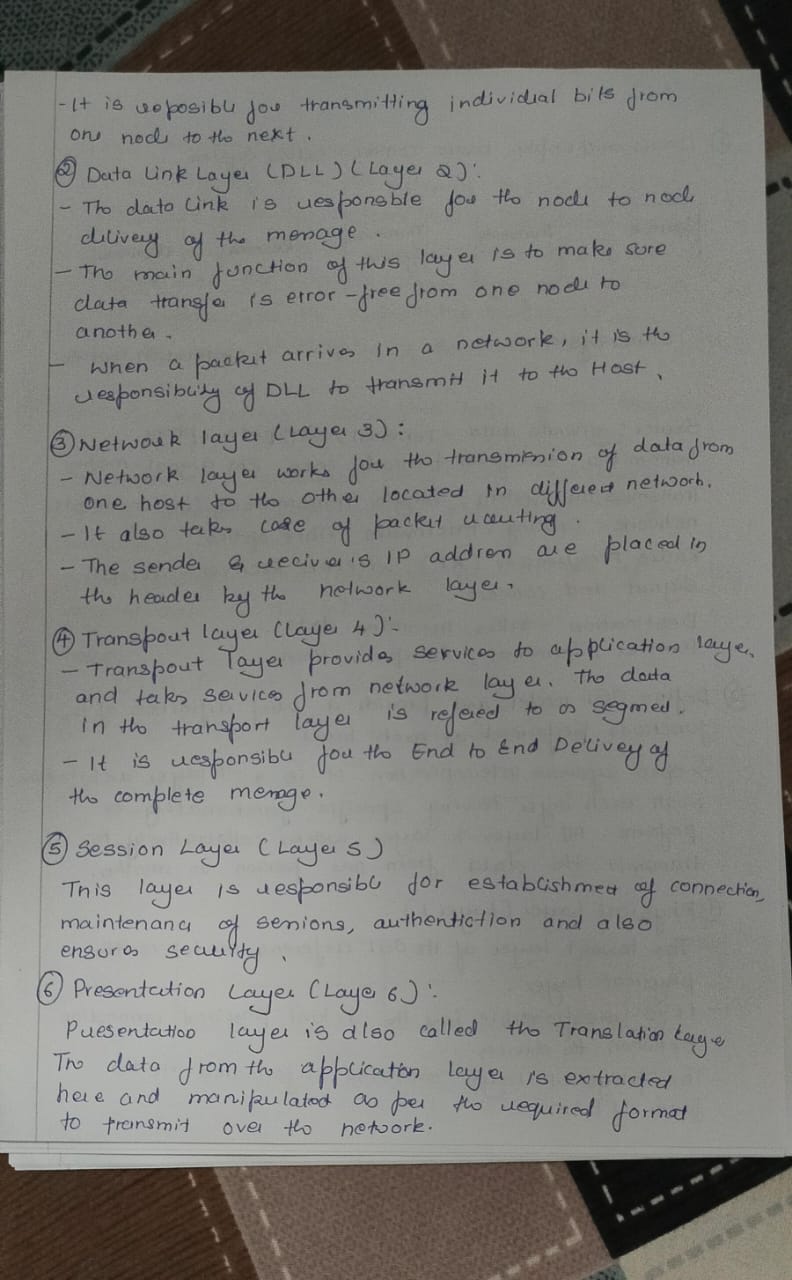 - It is reposible for transmitting individual bits from
one node to the next.
② Data Link Layer (DLL) (Layer 2):
- The data link is responsble for the node to node
delivery of the message.
- The main function of this layer is to make sure
data transfer is error-free from one node to
another.
- When a packet arrives in a network, it is the
responsibility of DLL to transmit it to the Host.
③ Network layer (Layer 3):
- Network layer works for the transmission of data from
one host to the other located in different network.
- It also takes care of packet routing.
- The sender & reciver's IP address are placed in
the header by the network layer.
④ Transport layer (Layer 4):-
- Transport layer provides services to application layer
and takes services from network layer. The data
in the transport layer is refered to as segmed.
- It is responsible for the End to End Delivey of
the complete message.
⑤ Session Layer (Layer 5)
This layer is responsible for establishment of connection,
maintenance of sessions, authentiction and also
ensures security.
⑥ Presentation Layer (Layer 6):
Presentation layer is also called the Translation layer
The data from the application layer is extracted
here and manipulated as per the required format
to transmit over the network.